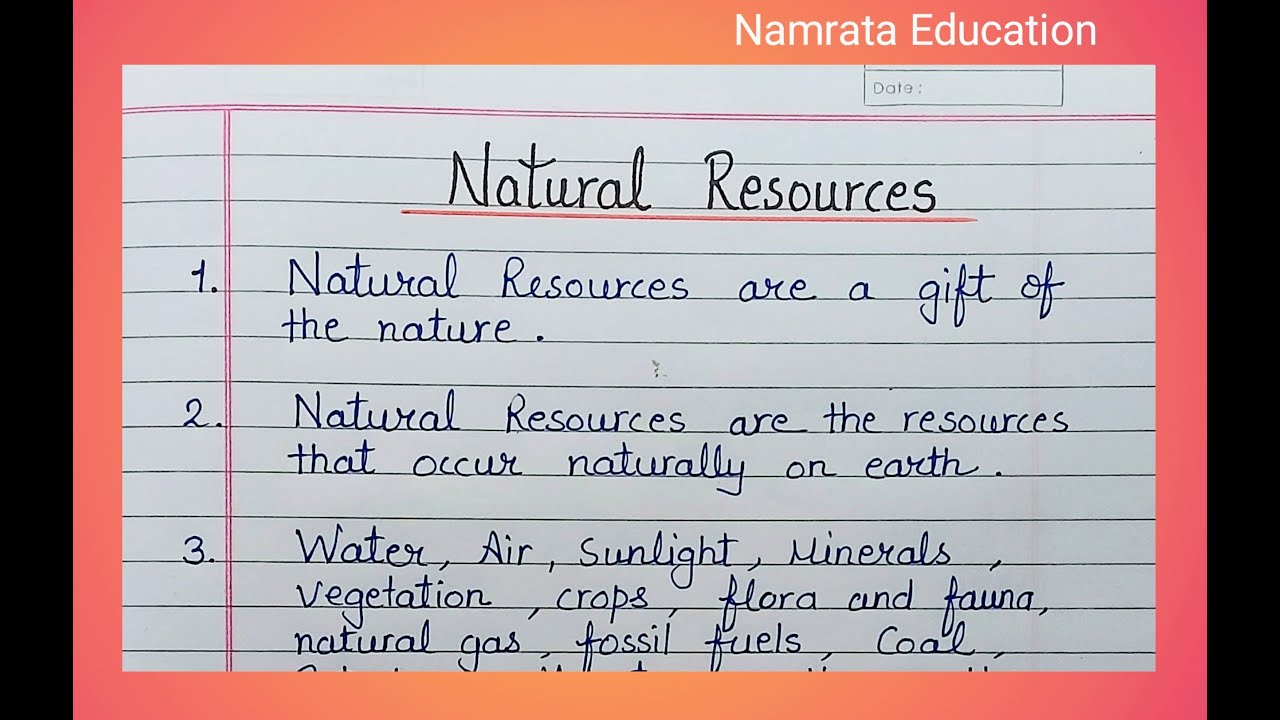 Namrata Education
Date :
Natural Resources
1. Natural Resources are a gift of
the nature.
2. Natural Resources are the resources
that occur naturally on earth.
3. Water, Air, Sunlight, Minerals,
vegetation, crops, flora and fauna,
natural gas, fossil fuels, Coal,